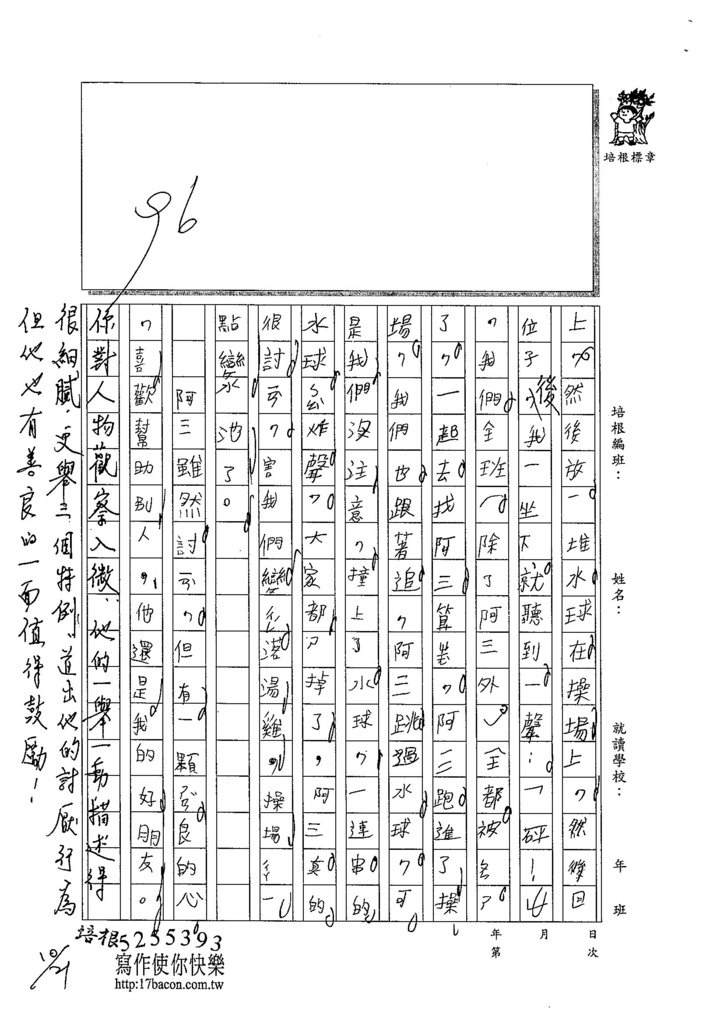 培根標章
培根編班：
姓名：
就讀學校：
年 班
日
次
月
年
第
96
上，然後放一堆水球在操場上，然後回
位子，後我一坐下就聽到一聲：「砰！」
，我們全班（除了阿三外）全都被
了，一起去找阿三算
場，我們也跟著追，阿三跳過水球，可
是我們沒注意，撞上了水球，一連串的
水球爆炸聲，大家都ㄕ掉了，阿三真的
很討ㄧㄢˋ，害我們變成落湯雞，操場ㄧㄝˇ一
點變水池了。
阿三雖然討ㄧㄢˋ，但有一顆ㄕㄢˋ良的心
，喜歡幫助別人，他還是我的好朋友。
你對人物觀察入微，他的一舉一動描述得
很細膩，又舉三個特例，道出他的討厭行為
但他也有善良的一面值得鼓勵！
10/21
培根5255393
寫作使你快樂
http:17bacon.com.tw